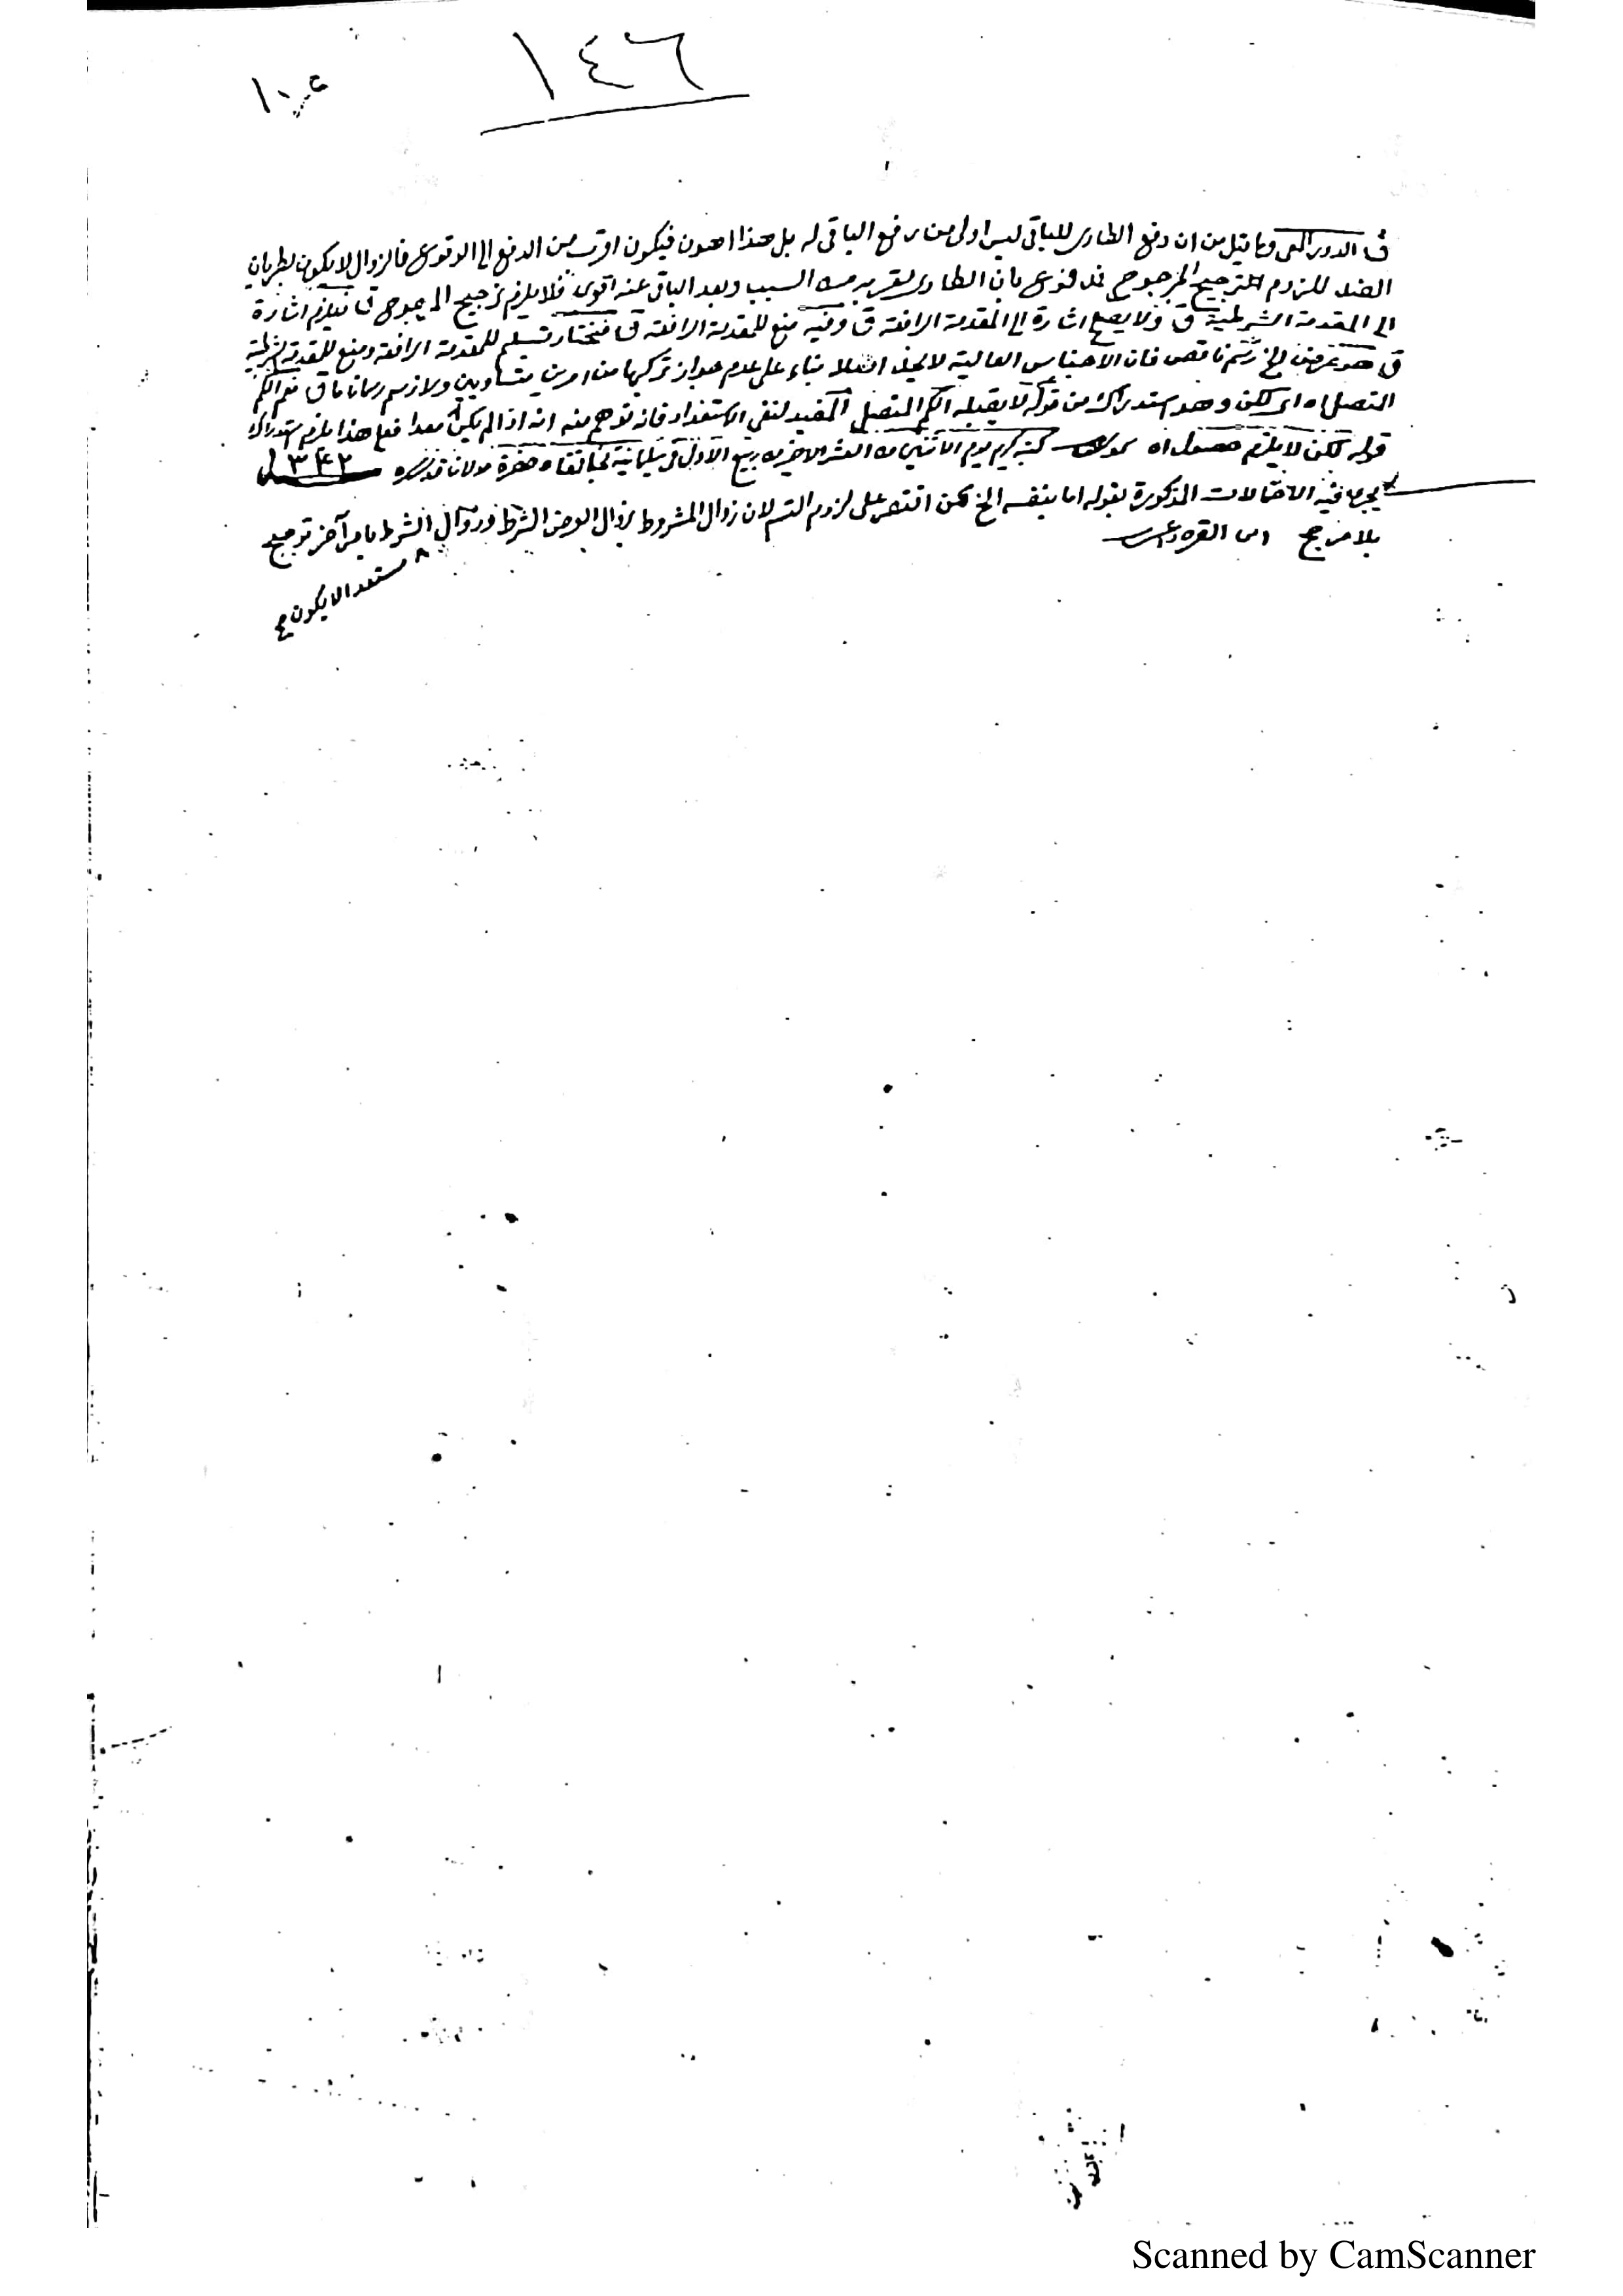 ١٤٦
في الدور المعي وما قيل من ان دفع الطارى للباقى ليس اولى من رفع الباقى له بل هذا اهون فيكون اقرب من الدفع الى الوقوع فالزوال لا يكون بطريان
الضد للزوم الترجيح المرجوح بان الطارى لقربه من السبب وبعد الباقى عنه اقوى فلا يلزم ترجيح المرجوح ق فيلزم اشارة
الى المقدمة الشرطية ق ولا يصح اشارة الى المقدمة الرافعة ق وفيه منع للمقدمة الرافعة ق فنختار تسليم للمقدمة الرافعة ومنع للمقدمة الشرطية
ق هو عرض الخ رسم ناقص فان الاجناس العالية لا تحد اصلا بناء على عدم جواز تركبها من امرين متساويين ولا ترسم رسما تاما ق نعم الكم
المتصل اه اى لكن وهو استدراك من قوله لا يقبله الكم المتصل المفيد لنفى الاستعداد فانه توهم منه انه اذا لم يكن معدا فعلى هذا يلزم استدراك
قوله لكن لا يلزم حصوله اه كتبه كريم يوم الاثنين من العشر الاخير من ربيع الاول في سليمانية خانقاه حضرة مولانا قدس سره ١٣٤٢
يجرى فيه الاحتمالات المذكورة بقوله اما بنفسه الخ لكن اقتصر على لزوم التسلسل لان زوال المشروط بزوال العرض الشرط وزوال الشرط بامر آخر ترجيح
بلا مرجح ابن القره داغى
مستعدا لا يكون
Scanned by CamScanner